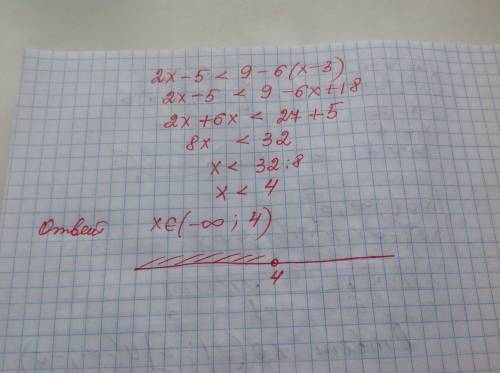 2x-5 < 9-6(x-3)
2x-5 < 9-6x+18
2x+6x < 27+5
8x < 32
x < 32:8
x < 4
Ответ x∈(-∞; 4)
4